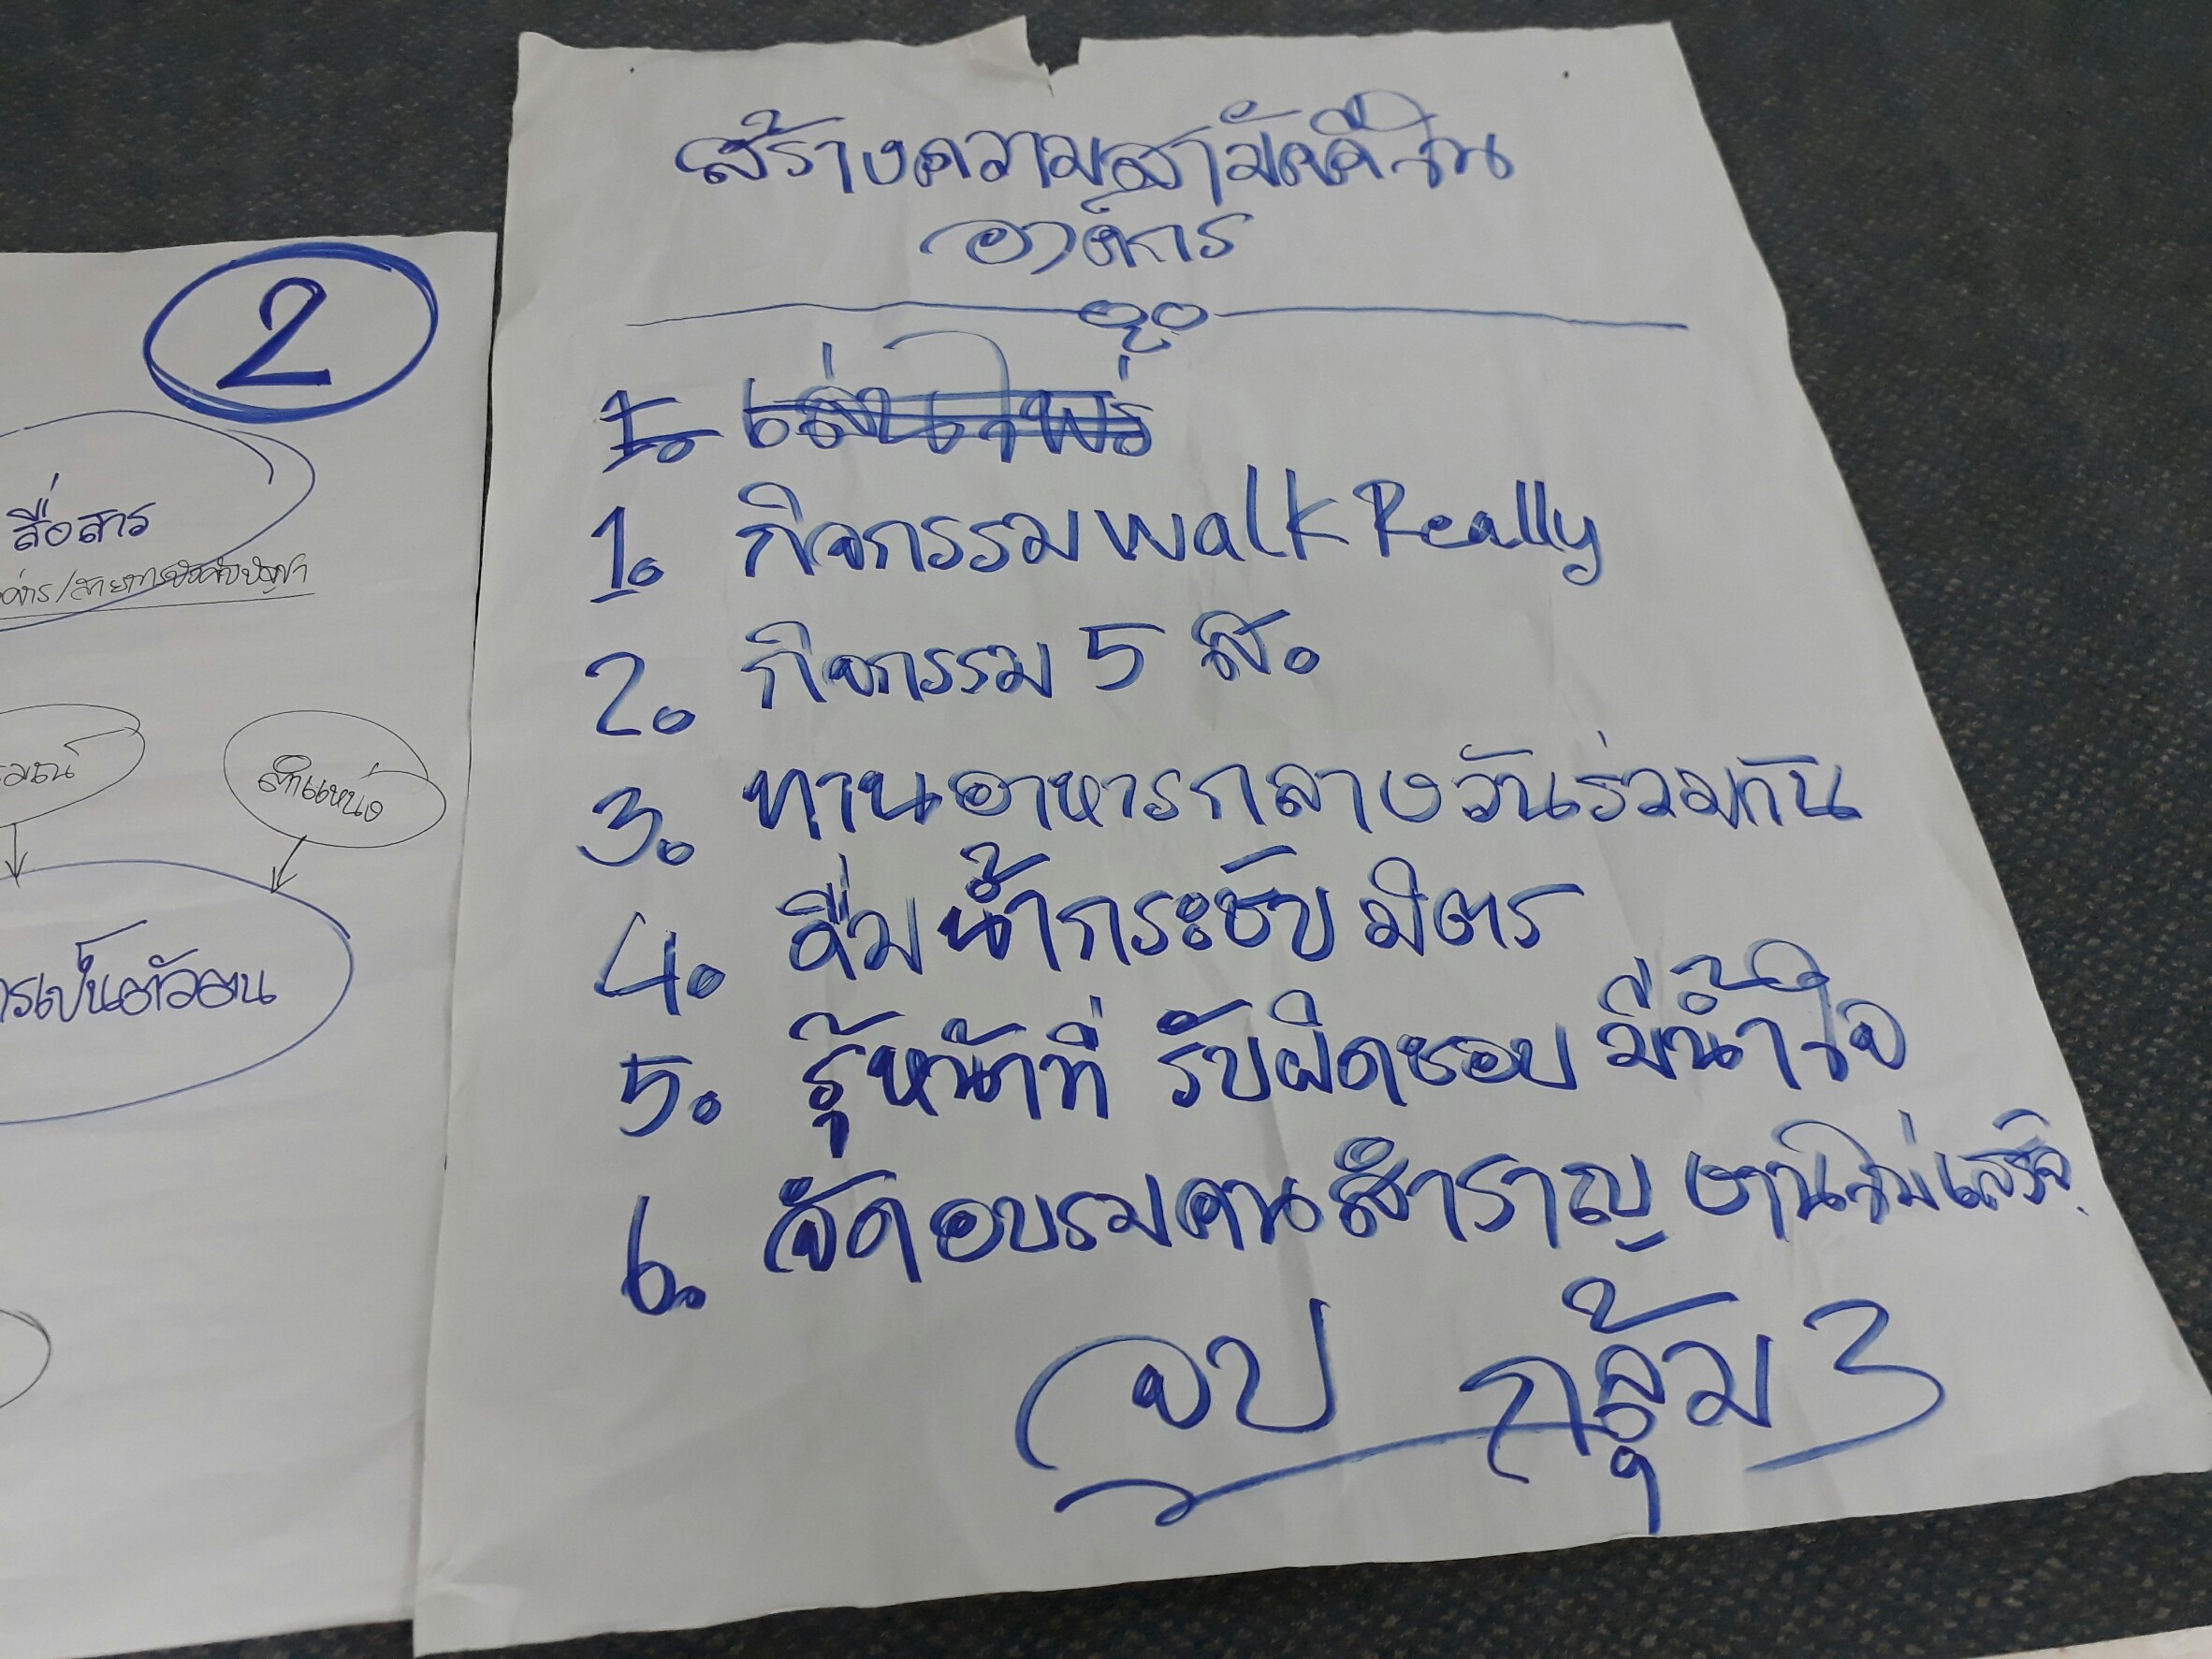 2
สื่อสาร
ตำแหน่ง
สร้างความสามัคคีใน
องค์กร
1. เล่นไพ่
1. กิจกรรม walk Really
2. กิจกรรม 5 ส.
3. ทานอาหารกลางวันร่วมกัน
4. ดื่มน้ำกระชับมิตร
5. รู้หน้าที่ รับผิดชอบ มีน้ำใจ
6. จัดอบรมคนสำราญ งานไม่เสร็จ
จบ กลุ้ม 3